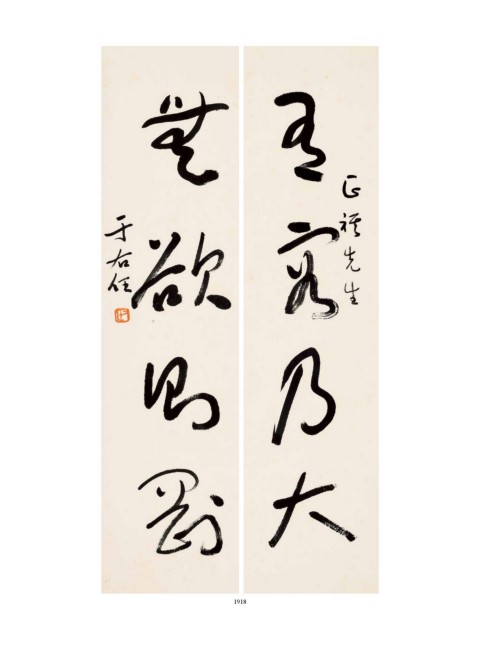 有容乃大
正祺先生
無欲則剛
于右任
1918